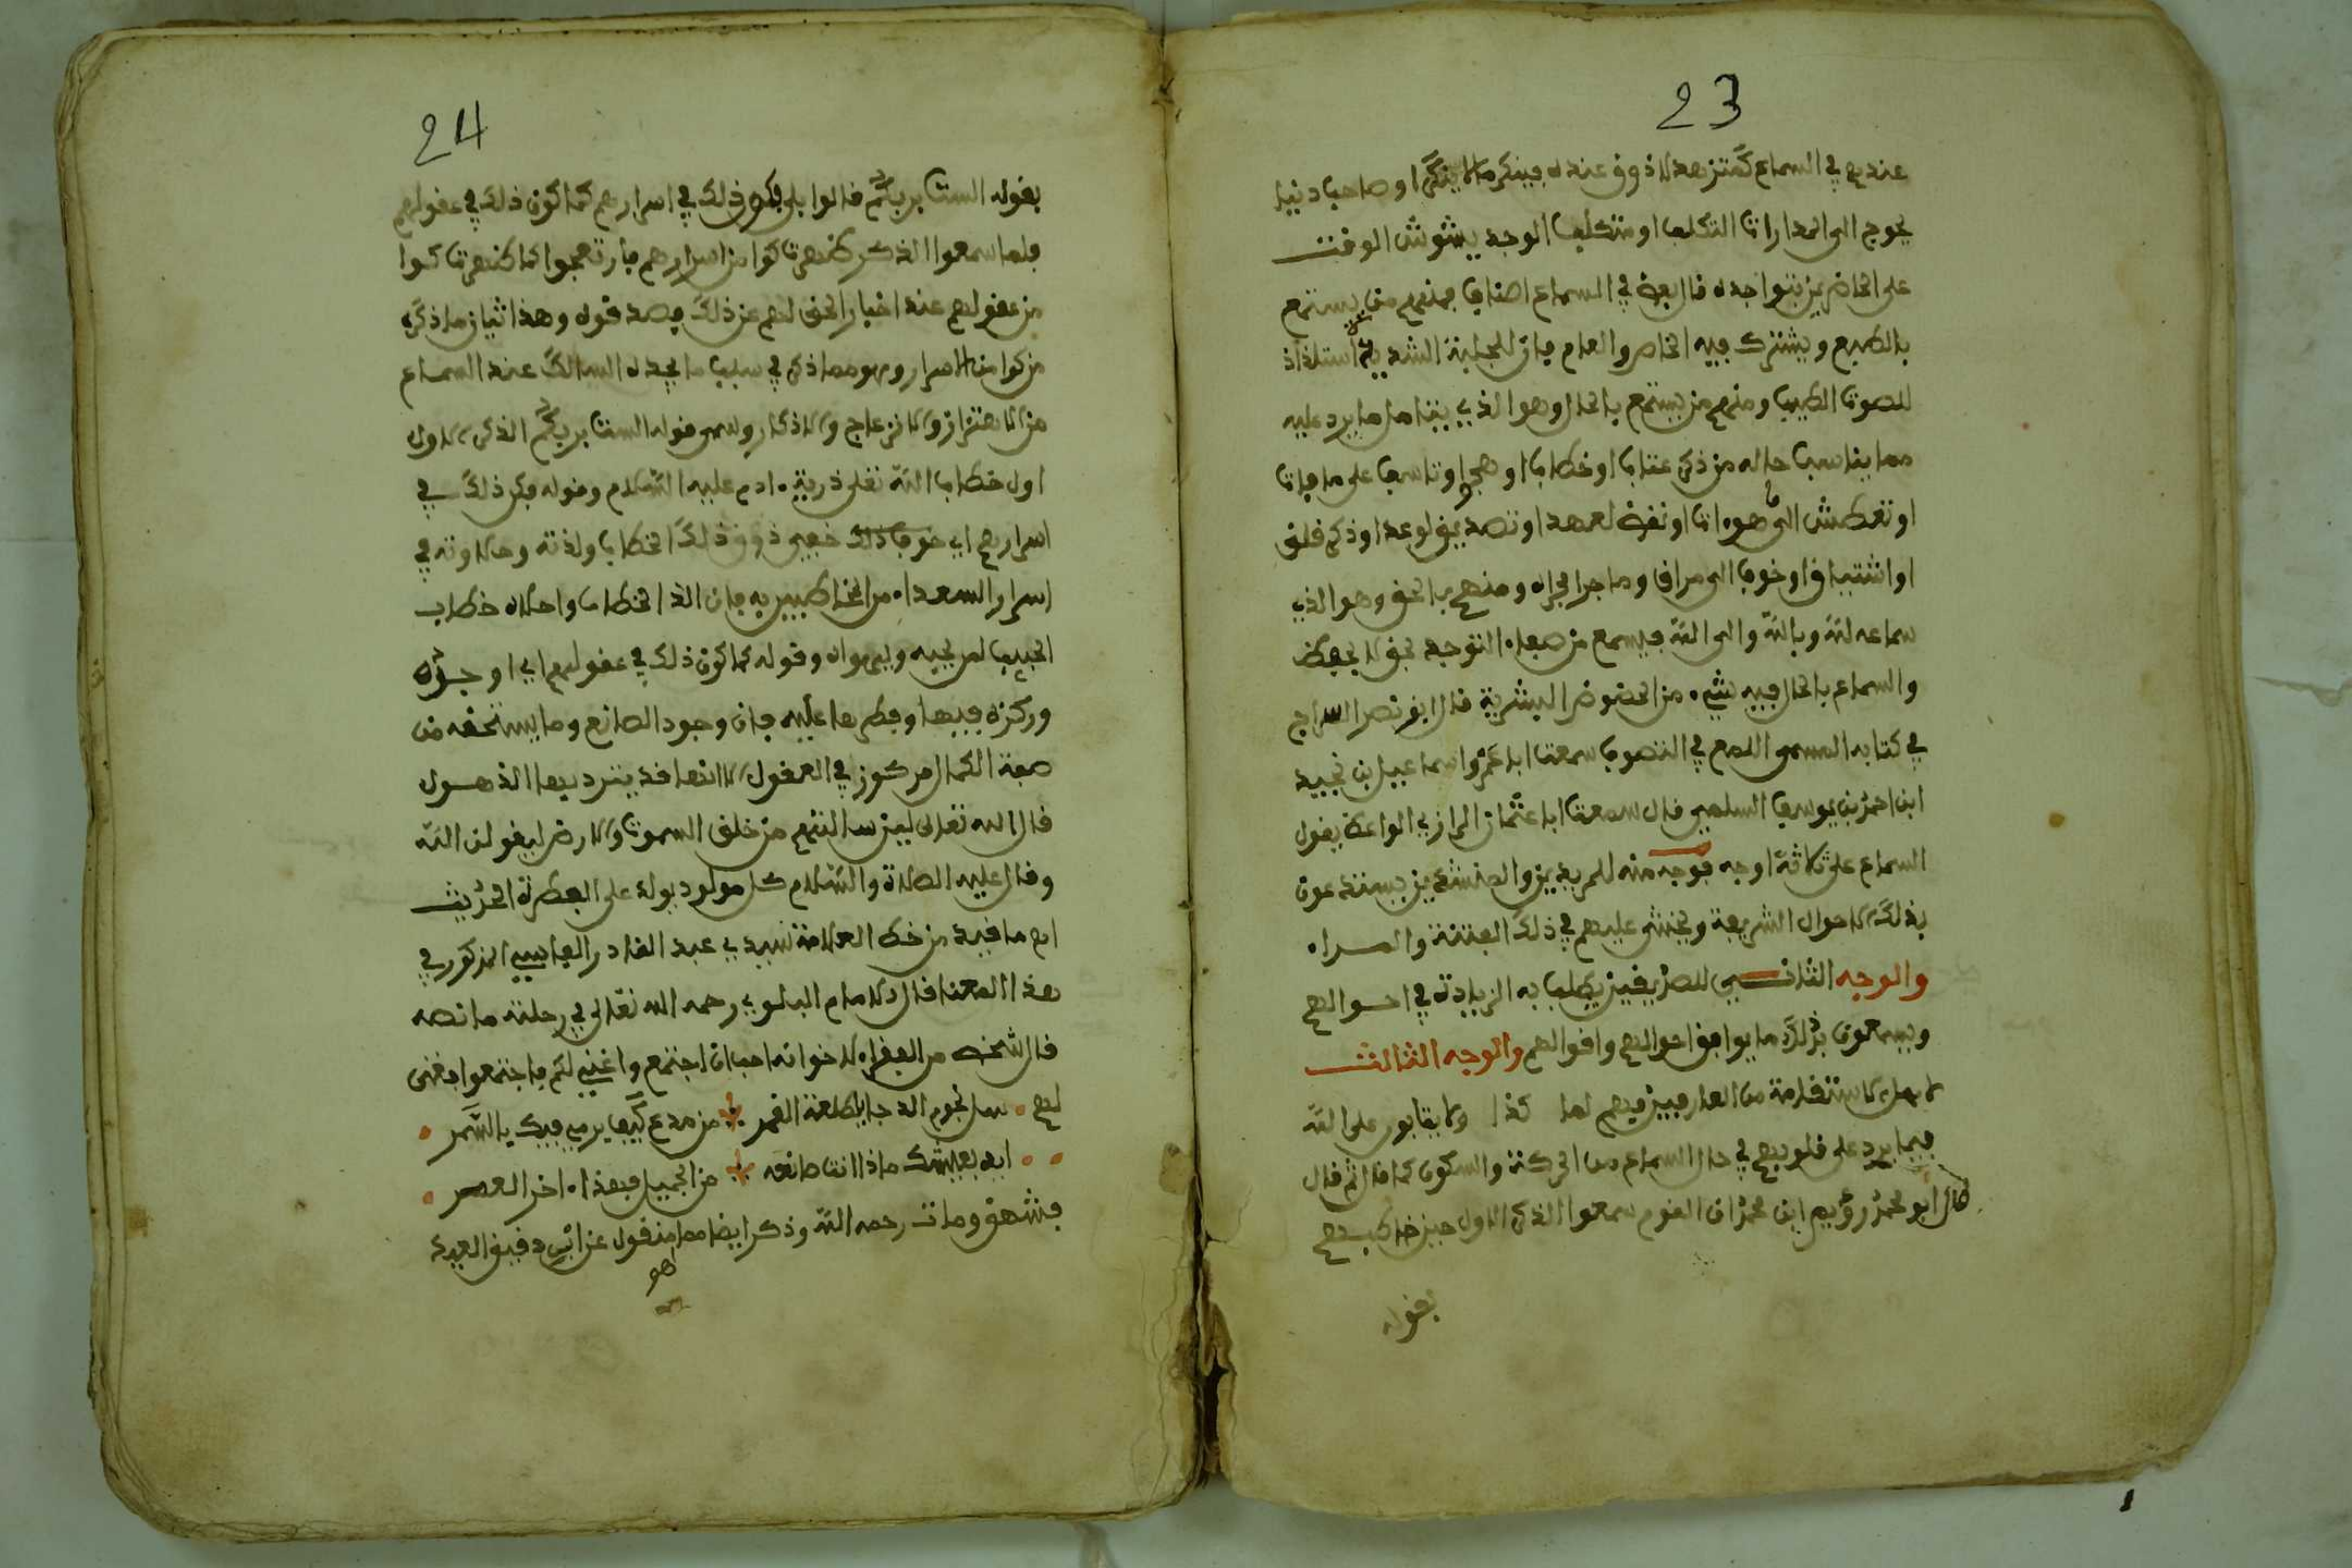 23
عندهم في السماع كمتزهد لا ذوق عنده فينكر ما لا ينكر او صاحب دنيا
يحوج الى المدارات التكلف او متكلف الوجد يشوش الوقت
على الحاضرين بتواجده قال بعض في السماع اصناف فمنهم من يستمع
بالطبع ويشترك فيه الخاص والعام فان للجبلة الشديدة استلذاذ
للصوت الطيب ومنهم من يستمع بالحال وهو الذي يتامل ما يرد عليه
مما يناسب حاله من ذكر عتاب او خطاب او هجر او تاسف على ما فات
او تعطش الى ما هو ات او نقض لعهد او تصديق لوعد او ذكر قلق
او اشتياق او خوف الى مراق وما جرا مجراه ومنهم بالحق وهو الذي
سماعه لله وبالله والى الله فيسمع من صفاء التوحيد بحق لا بحظ
والسماع بالحال فيه شيء من الحضوض البشرية قال ابو نصر السراج
في كتابه المسمى اللمع في التصوف سمعت ابا عمرو اسماعيل بن نجيد
ابن احمد بن يوسف السلمي قال سمعت ابا عثمان الرازي الواعظ يقول
السماع على ثلاثة اوجه فوجه منه للمريدين والمبتدئين يستدعون
بذلك الاحوال الشريفة ويخشى عليهم في ذلك الفتنة والمراء
والوجه الثاني للصديقين يطلب به الزيادة في احوالهم
ويسمعون بذلك ما يوافق احوالهم واقوالهم والوجه الثالث
لاهل الاستقامة من العارفين فيهم لما كذا ولا يتابون على الله
فيما يرد على قلوبهم في حال السماع من الحركة والسكون كما قال ثم قال
قال ابو محمد رؤيم ابن محمد ان القوم سمعوا الذكر الاول حين خاطبهم
بقوله
24
بقوله الست بربكم قالوا بلى فكون ذلك في اسرارهم كما كون ذلك في عقولهم
فلما سمعوا الذكر ظهرت كوامن اسرارهم فارتعجوا كما ظهرت كوا
من عقولهم عند اخبار الحق لهم عن ذلك فصدقوه وهذا ثان ما ذكر
من كوامن الاسرار وهو مما ذكر في سبب ما يجده السالك عند السماع
من الاهتزاز والانزعاج والاذكار وسمى قوله الست بربكم الذكر الاول
اول خطاب الله تعلى ذرية ادم عليه السلام وقوله فكن ذلك في
اسرارهم اي خوف ذلك خفي ذوق ذلك الخطاب ولذته وحلاوته في
اسرار السعداء من المخاطبين به فان الذ الخطاب واحلاه خطاب
الحبيب لمن يحبه ويهواه وقوله كما كون ذلك في عقولهم اي اوجده
وركزه فيها وفطرها عليه فان وجود الصانع وما يستحقه من
صفة الكمال مركوز في العقول الا انها قد يتر ديها الذهول
قال الله تعالى لين سالتهم من خلق السموت والارض ليقولن الله
وقال عليه الصلاة والسلام كل مولود يولد على الفطرة الحديث
اه ما قيد من خط العلامة سيدي عبد القادر الفاسي المذكور في
هذا المعنا قال الامام البلوي رحمه الله تعالى في رحلته ما نصه
قال شخص من الفقراء لاخوانه احب ان اجتمع واغني لكم فاجتمعوا فغنى
لهم سل نجوم الدجا يا طلعة القمر من مدع كيف يرمي فيك يا السمر
ايه بعيشك ماذا انت صانعه من الجميل فهذا اخر العمر
فشهق ومات رحمه الله وذكر ايضا مما منقول عن ابن دقيق العيد